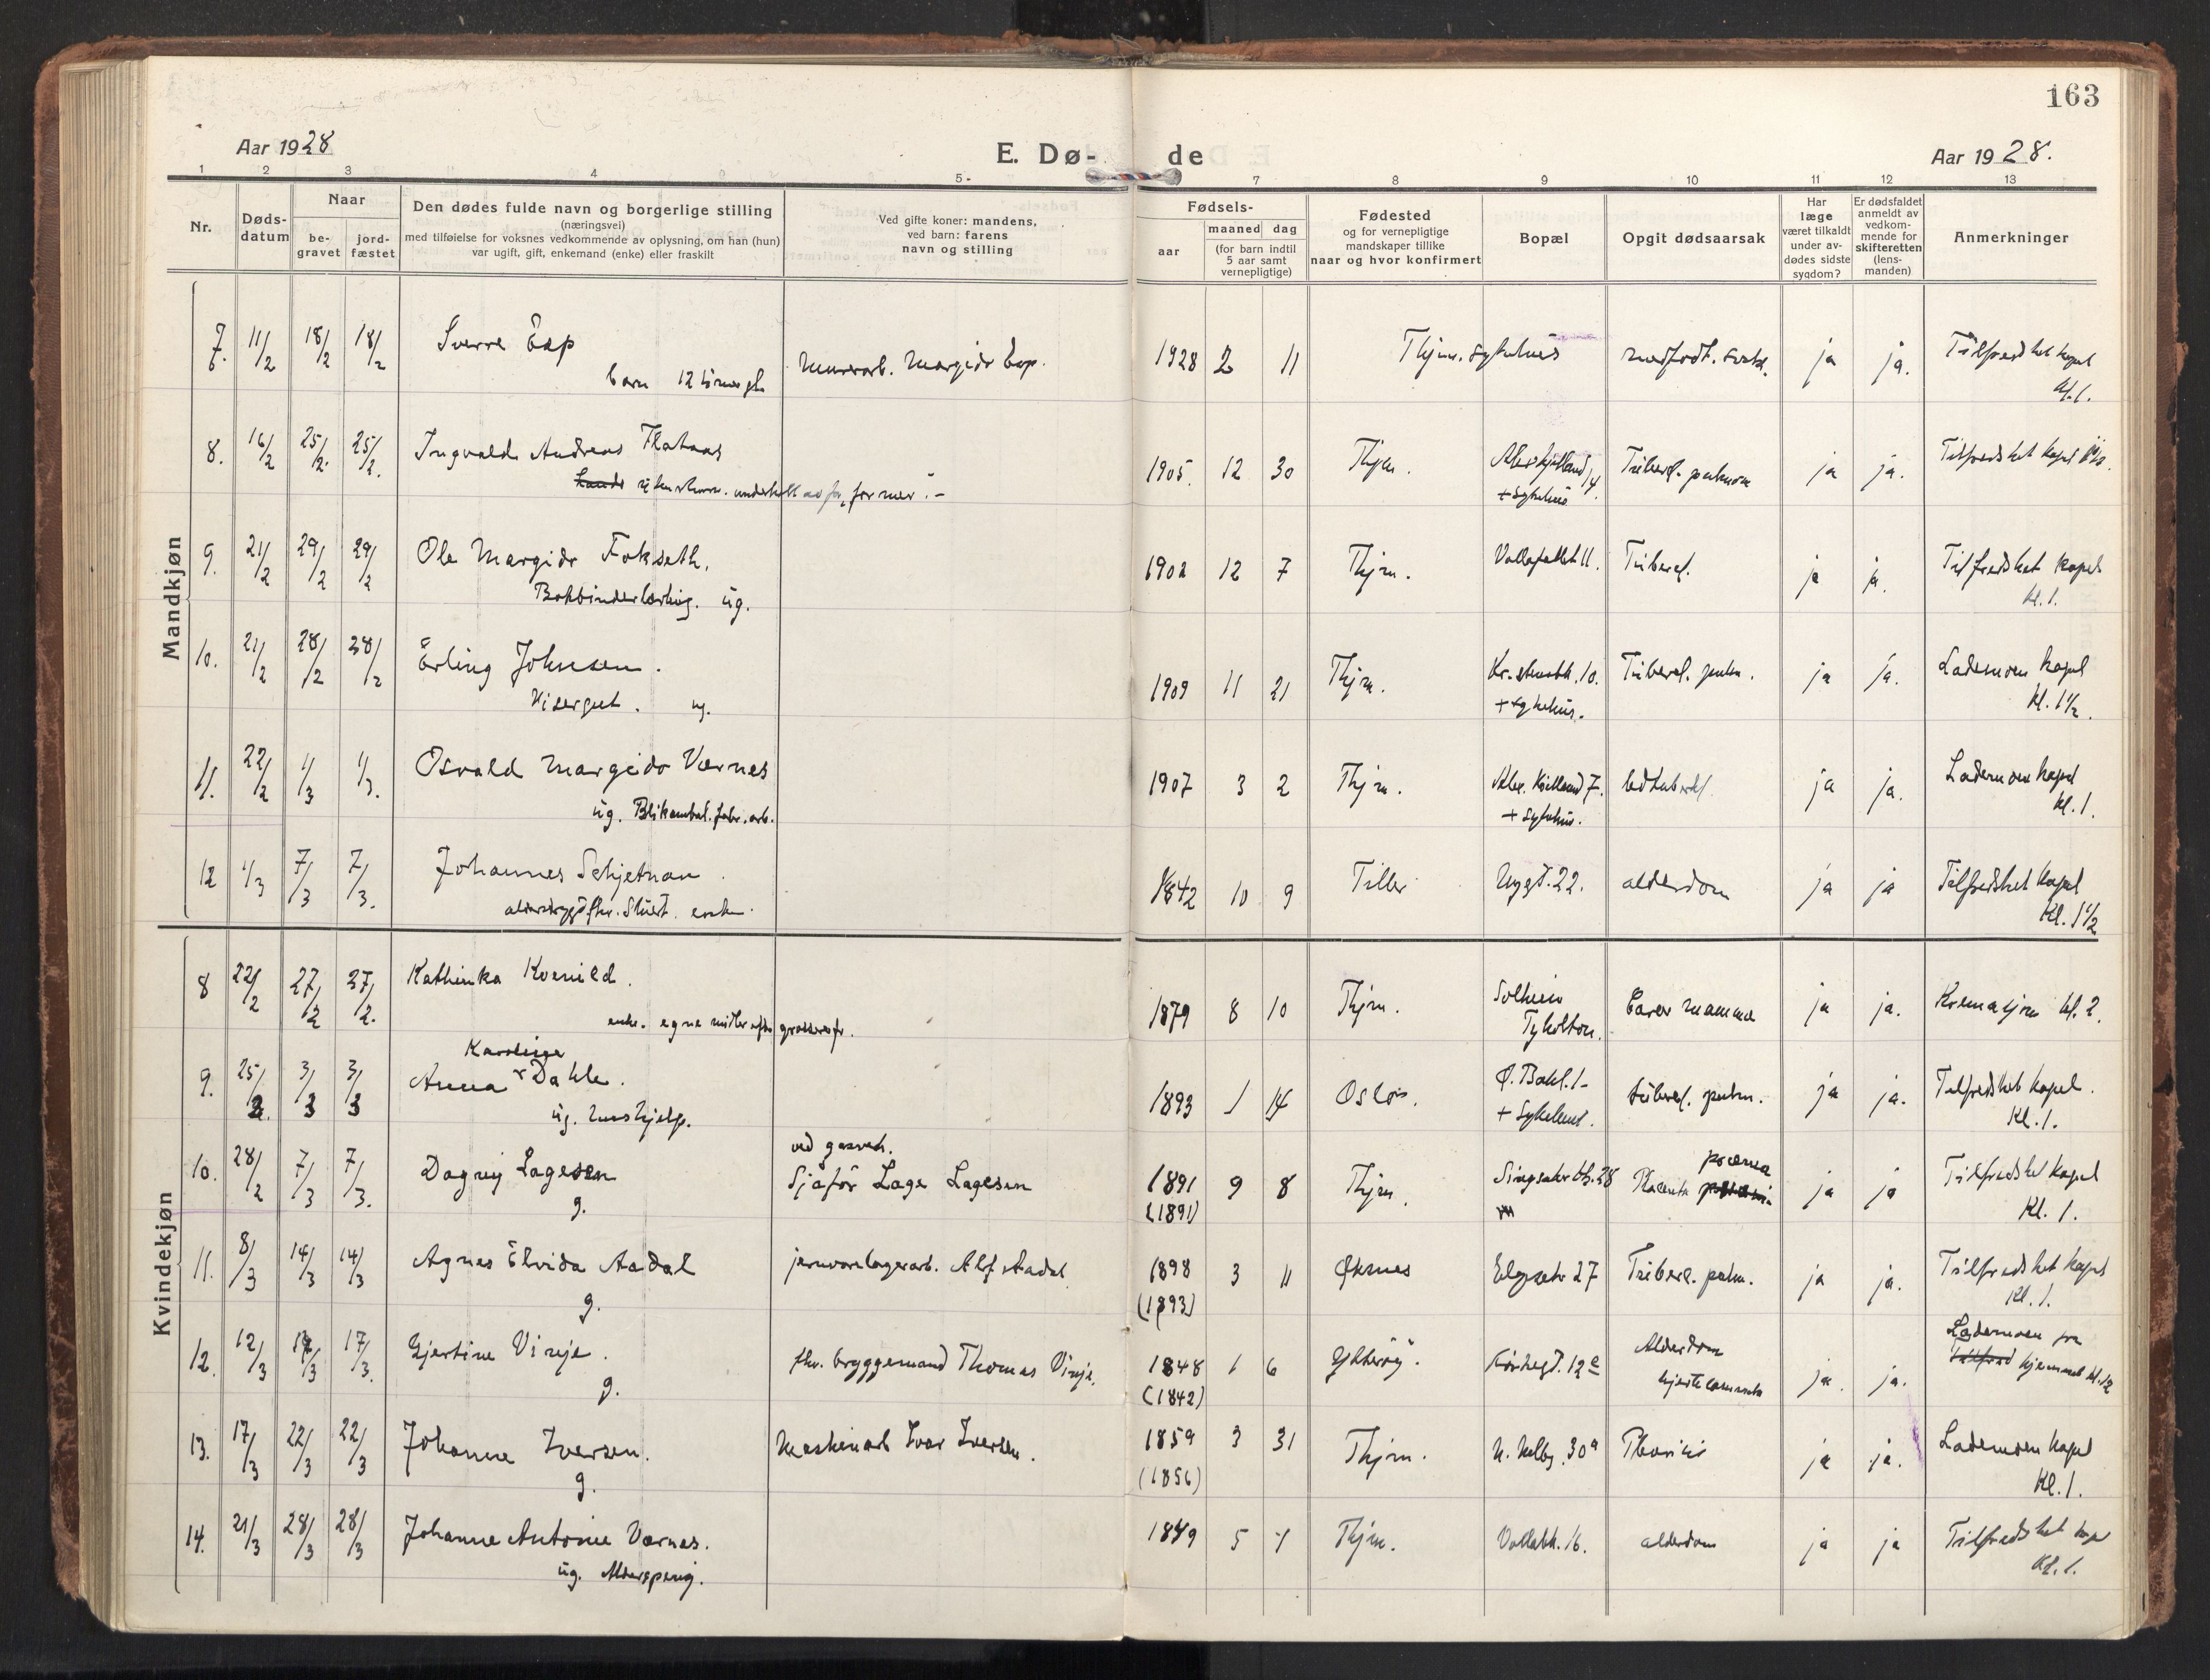 163
Aar 1928
E. Dø-
de
Aar 1928.
1 2 3 4 5 7 8 9 10 11 12 13
Nr.
Døds-
datum
Naar
be-
gravet
jord-
fæstet
Den dødes fulde navn og borgerlige stilling
(næringsvei)
med tilføielse for voksnes vedkommende av oplysning, om han (hun)
var ugift, gift, enkemand (enke) eller fraskilt
Ved gifte koner: mandens,
ved barn: farens
navn og stilling
Fødsels-
aar
maaned dag
(for barn indtil
5 aar samt
vernepligtige)
Fødested
og for vernepligtige
mandskaper tillike
naar og hvor konfirmert
Bopæl
Opgit dødsaarsak
Har
læge
været tilkaldt
under av-
dødes sidste
sygdom?
Er dødsfaldet
anmeldt av
vedkom-
mende for
skifteretten
(lens-
manden)
Anmerkninger
Mandkjøn
7. 11/2 18/2 18/2 Sverre barn 12 Margido 1928 2 11 Thjm. sykehus medfødt. ja ja. Tilfredshet kapel kl. 1.
8. 16/2 25/2 25/2. Ingvald Andreas Flataas 1905. 12 30 Thjm. 14. + sykehus Tubercl. pulmon ja ja. Tilfredshet kapel
9. 21/2 29/2 29/2 Ole Margido Fokseth. Bokbinderlærling. ug. 1902 12 7 Thjm. Vollafallet 11. Tubercl. ja ja. Tilfredshet kapel kl. 1.
10. 21/2 28/2 28/2 Erling Johnsen. Visergut. ug. 1909 11 21 Thjm. 10. + sykehus. Tubercl. pulm. ja ja. Lademoen kapel Kl. 1 1/2.
11. 22/2 1/3 1/3. Osvald Margido Værnes ug. Blikembal. fabr. arb. 1907 3 2 Thjm. Alex. Kielland 7. + sykehus. ja ja. Lademoen kapel Kl. 1.
12 1/3 7/3 7/3. Johannes Schjetnan 1842 10 9 Tiller Nygt. 22. alderdom ja ja Tilfredshet kapel Kl. 1 1/2
Kvindekjøn
8 22/2 27/2 27/2. Kathinka Kvenild. enke. egne midler 1879 8 10 Thjm. Solheim Tyholtvn. Cancer mamma ja ja. Kremasjon kl. 2.
9. 25/2. 3/3 3/3 Anna Karoline Dahle. ug. hushjelp. 1893 1 14 Oslo. Ø. Bakl. 1 + Sykehus. tubercl. pulm. ja ja. Tilfredshet kapel. Kl. 1.
10. 28/2 7/3 7/3. Dagny Lagesen g. ved gasverk. Sjåfør Lage Lagesen 1891 (1891) 9 8 Thjm. 28 Placenta prævia ja ja Tilfredshet kapel Kl. 1.
11. 8/3 14/3 14/3 Agnes Elvida Aadal g. jernvarelagerarb. Alf Aadal. 1898 (1893) 3 11 Øksnes Elgesetr 27 Tubercl. pulm. ja ja. Tilfredshet kapel Kl. 1.
12. 12/3 17/3 17/3. Gjertine Vinje. g. fhv. bryggemand Thomas Vinje. 1848 (1842) 1 6 Ytterøy. 12 Alderdom ja. ja. Lademoen fra hjemmet kl. 12
13. 17/3 22/3 22/3 Johanne Iversen. g. Maskinarb Ivar Iversen. 1859 (1856) 3 31 Thjm. 30a ja ja. Lademoen kapel Kl. 1.
14. 21/3 28/3 28/3 Johanne Antonie Værnes. ug. Alderspens. 1849 5 4 Thjm. Vollabk. 16. alderdom ja ja Tilfredshet kap Kl. 1.